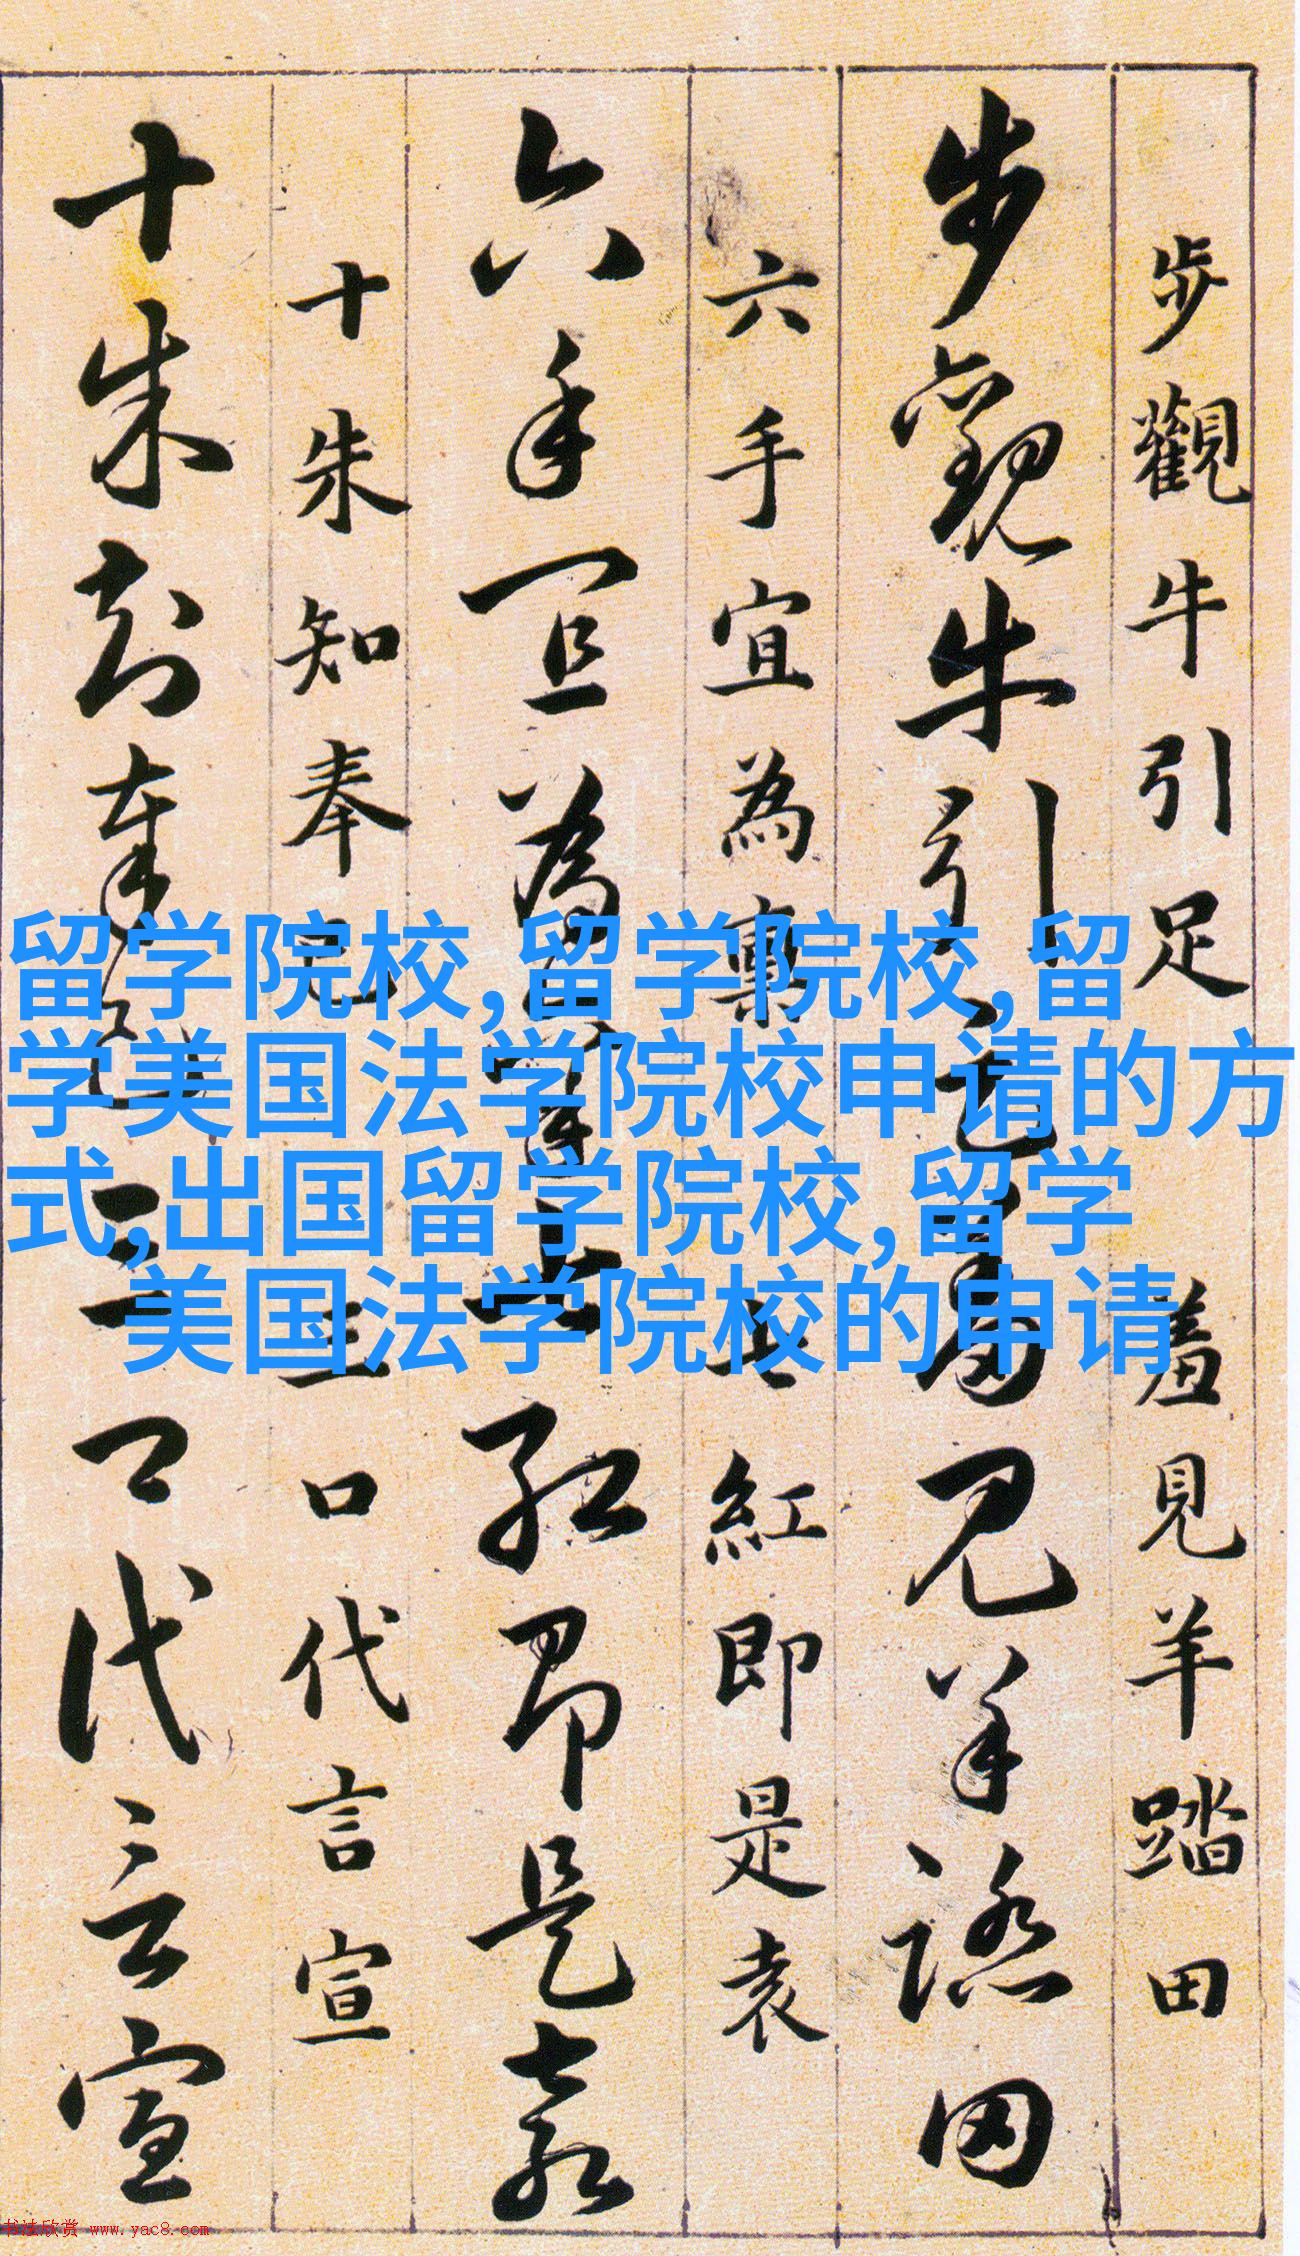 步觀牛引足羞見羊踏田
步觀牛引足羞見羊踏田
六手宜為稟七紅即是袁
六手宜為稟七紅即是袁
十朱知奉已三口代言宣
十朱知奉已三口代言宣
留学院校,留学院校,留
学美国法学院校申请的方
式,出国留学院校,留学
美国法学院校的申请
书法欣赏 www.yac8.com